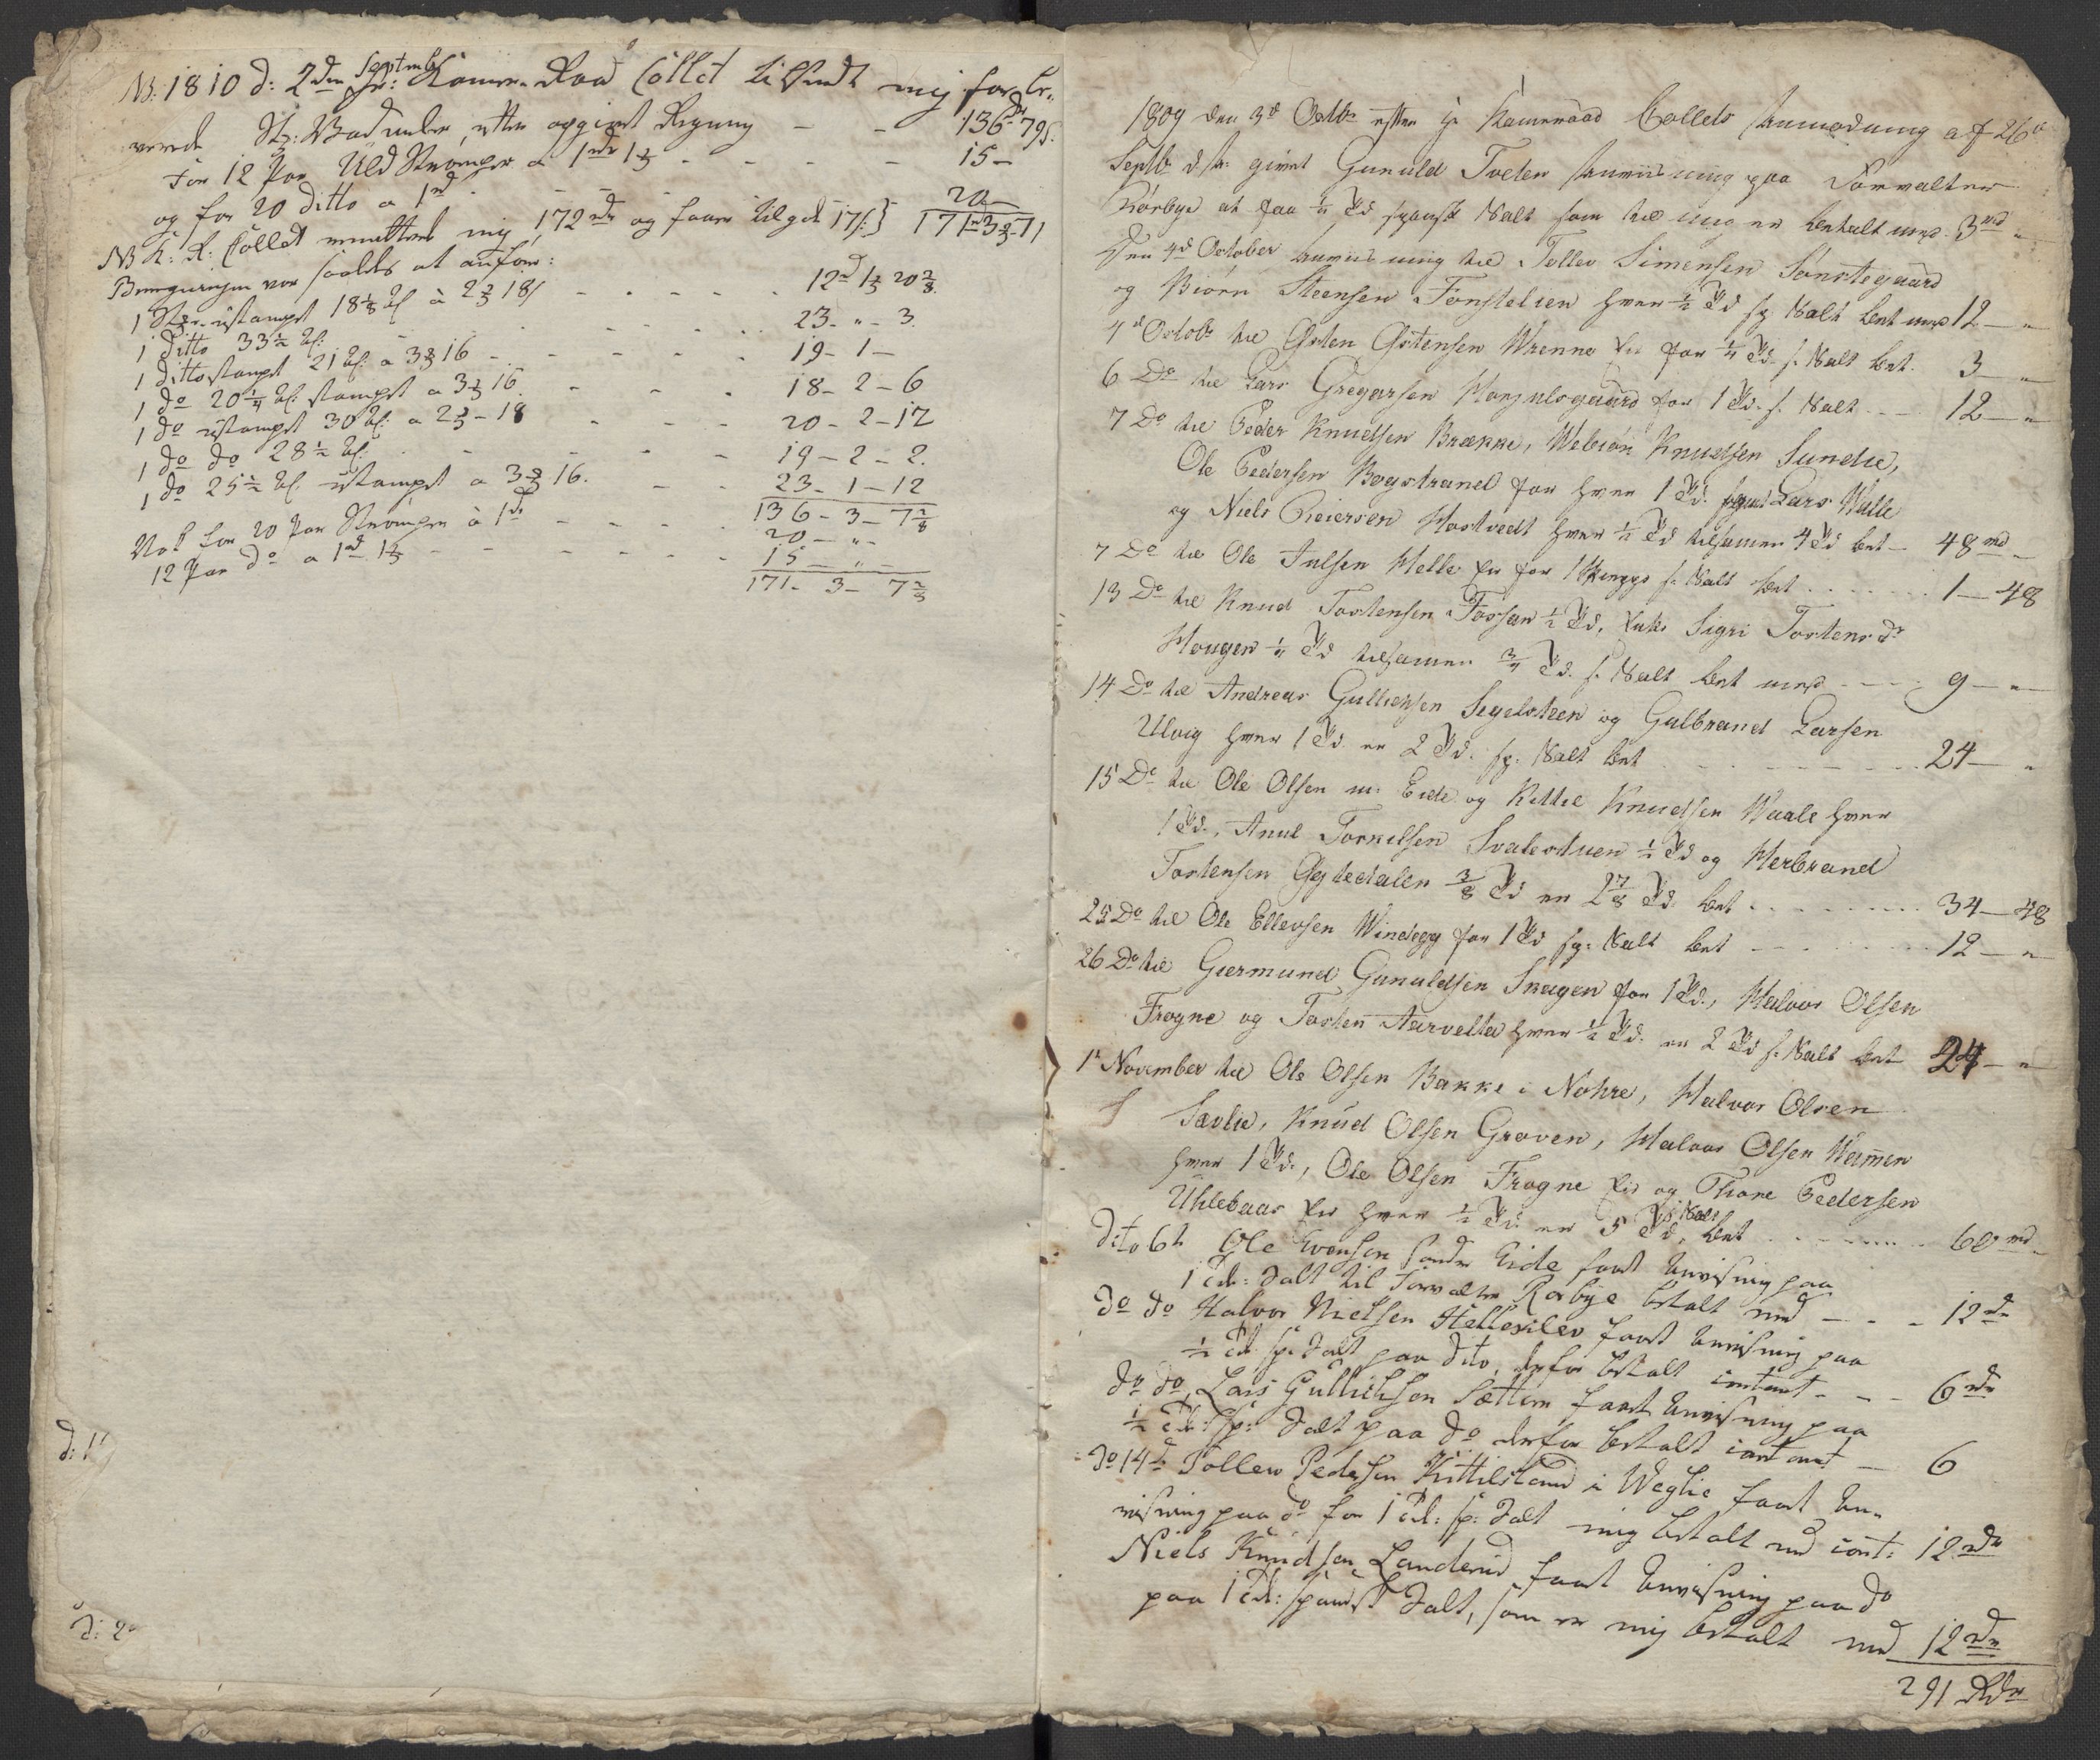 NB. 1810 d: 2den Septembr Hr: Kamer-Raad Collet tilsendt mig for le-
verede St: Vadmeler, efter opgivet Regning - - 136rd 79s.
For 12 Par Uld Strömper a 1rd 1/3 - - - - 15-
og for 20 ditto a 1rd - - - 20-
NB K: R: Collet remitteret mig 172rdr og faaer tilgode 17s: } 171rd 3/3 - 71
Beregningen var saaledes at anføre:
1 St: ustampet 18 1/8 al a 2/3 18s - - - - - 12rd 1/3 20 2/8.
1 Ditto 33 1/2 al: - - - - - 23- " - 3.
1 ditto stampet 21 al: a 3/3 16 - - - - 19-1-
1 do 20 1/4 al: stampet a 3/3 16. - - - 18-2-6
1 do ustampet 30 al: a 2/3-18 - - - 20-2-12
1 do do 28 1/2 al: - - - - 19-2-2.
1 do 25 1/2 al. ustampet a 3/3 16. - - 23-1-12
136-3-7 2/8
Nok for 20 Par Strömper à 1rd - - - - 20- " -
12 Par do a 1rd 1/3 - - - - - 15- " -
171-3-7 2/8
d: 1
d: 2
1809 den 3d Octbr efter Hr Kamerraad Collets Anmodning af 26d
Septbr d.A. givet Gunuld Tveten Anviisning paa Forvalter
Rörbye at faa 1/4 Td spansk Salt som til mig er betalt med 3rd "
Den 4d October Anviisning til Tollev Simensen Sönstegaard
og Biörn Steensen Fonstelien hver 1/2 Td sp Salt bet med 12 - "
4d Octobr til Gsten Gstensen Wrenne for 1/4 Td. s. Salt bet. 3 - "
6 Do til Lars Gregersen Manzulsgaard for 1 Td. s. Salt - - - 12 - "
7 Do til Peder Knudsen Brække, Webiörn Knudsen Sundlie,
Ole Pedersen Bogstrand for hver 1 Td. Lars Walle
og Niels Reiersen Hostvedt hver 1/2 Td tilsamen 4 Td bet - 48rd "
7 Do til Ole Julsen Helle for 1 Skieppe s. Salt bet . . . . 1 - 48
13 Do til Knud Torstensen Fossan 1/2 Td, Enke Sigri Torstensdr
Hougen 1/4 Td tilsamen 3/4 Td. s. Salt bet med - - - - 9 - "
14 Do til Andreas Gullichsen Segelsteen og Gulbrand Larsen
Ulvig hver 1 Td. er 2 Td. sp: Salt bet - - - - - 24 - "
15 Do til Ole Olsen m. Eide og Kittil Knudsen Waale hver
1 Td., Anul Torkilsen Svalestuen 1/2 Td og Herbrand
Torstensen Gystedalen 3/8 Td er 2 7/8 Td. bet - - - - - 34 - 48
25 Do til Ole Ellevsen Windegg for 1 Td sp: Salt bet - - - - - 12 - "
26 Do til Giermund Gunuldsen Skagen for 1 Td., Halvor Olsen
Frogne og Torsten Aarvelta hver 1/2 Td. er 2 Td s. Salt bet 24 - "
1d November til Ole Olsen Bakke i Nohre, Halvor Olsen
Sævlie, Knud Olsen Groven, Halvor Olsen Wamen
hver 1 Td., Ole Olsen Frogne og Thore Pedersen
Uhlebaas hver 1/2 Td. er 5 Td. s. Salt, bet - - - - - 60rd "
dito 6t Ole Evensen søndre Eide faaet Anvisning paa
1 Td: Salt til Forvalter Rörbye betalt med - - - 12rdr
do do Halvor Nielsen Hellesilev faaet Anvisning paa
1/2 Td. sp: Salt paa dito, derfor betalt contant - - - 6rdr
do do, Lars Gullichsen Sættem faaet Anvisning paa
1/2 Td: sp: Salt paa do derfor betalt contant - 6
do 14de Tollev Pedersen Kittilsland i Weglie faaet An-
visning paa do for 1 Td: sp: Salt mig betalt med cont: 12rdr
Niels Knudsen Landerud faaet Anvisning paa do
paa 1 Td: spansk Salt, som er mig betalt med 12rdr
291 Rdr